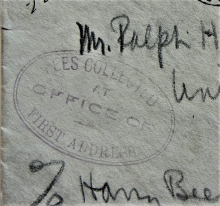 Mr. Ralph H
FEES COLLECTED
AT
OFFICE OF
FIRST ADDRESS
Uni
% Harry Bee